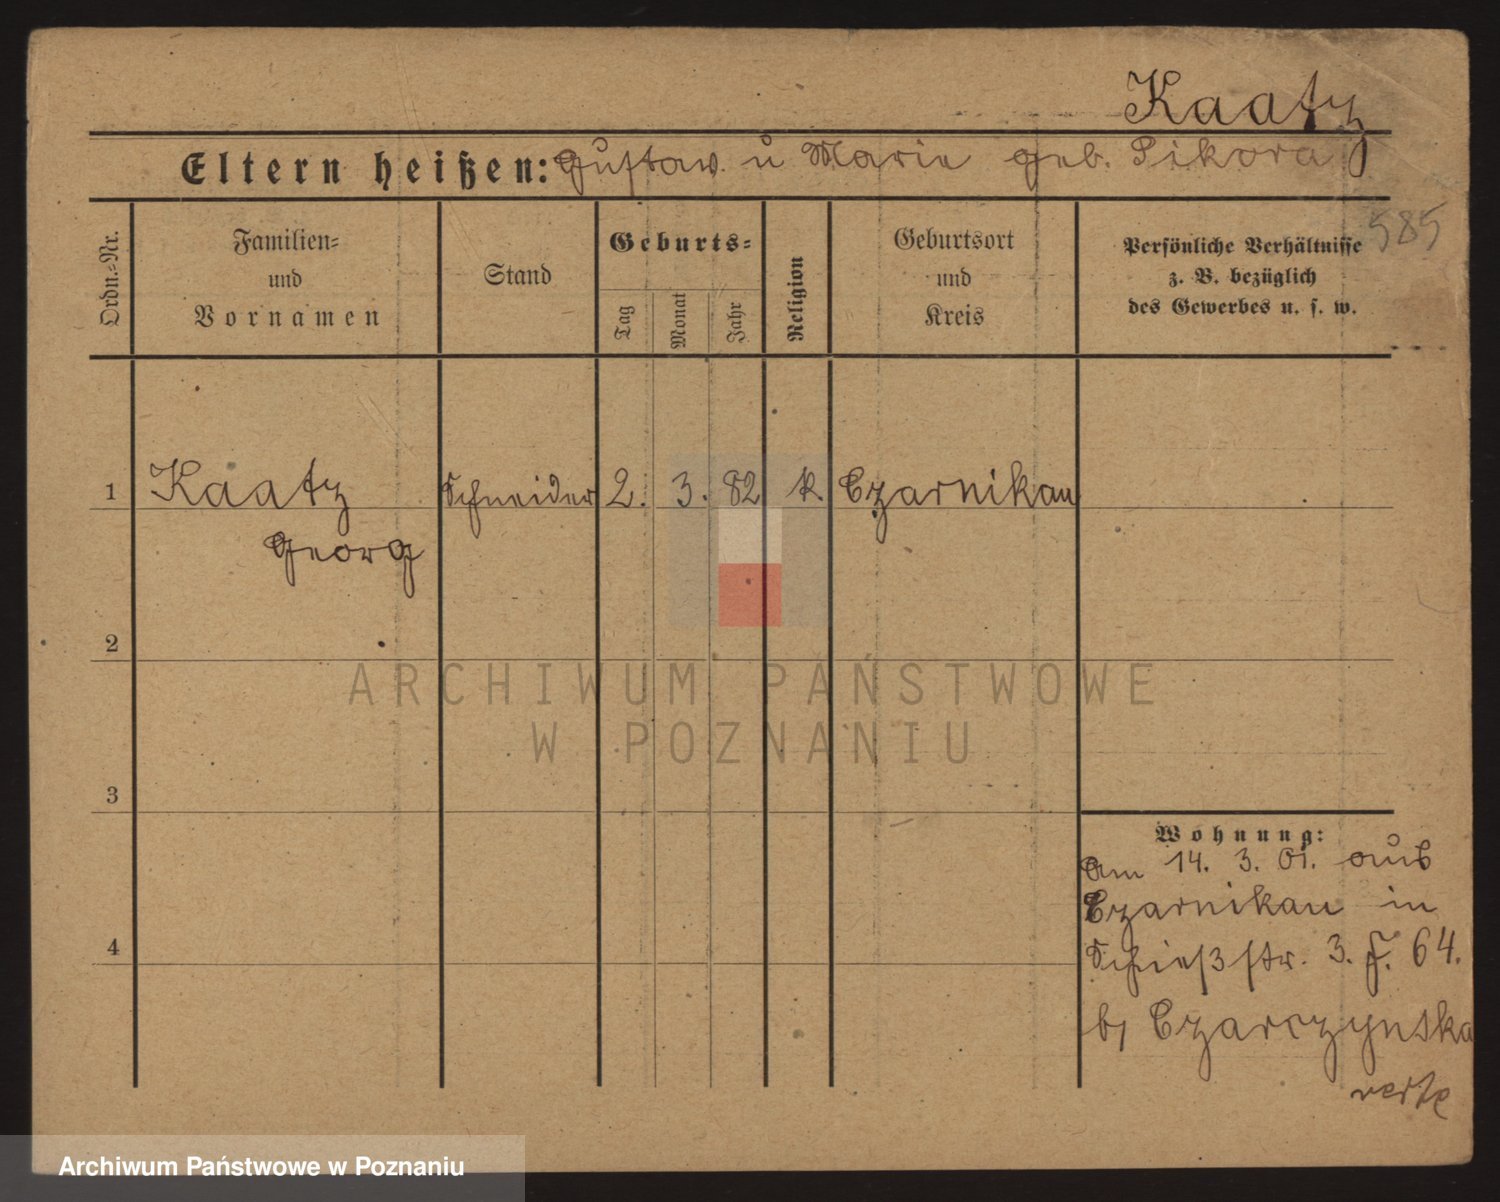 Kaatz
Eltern heißen: Gustav u Marie geb. Sikora
585
Ordn.-Nr.
Familien-
und
Vornamen
Stand
Geburts-
Tag
Monat
Jahr
Religion
Geburtsort
und
Kreis
Persönliche Verhältnisse
z. B. bezüglich
des Gewerbes u. s. w.
1 Kaatz Schneider 2. 3. 82 k. Czarnikau
Georg
2
3
4
Wohnung:
Am 14. 3. 01. aus
Czarnikau in
Schießstr. 3. J. 64.
b/ Czarczynska
verte
ARCHIWUM PAŃSTWOWE
W POZNANIU
Archiwum Państwowe w Poznaniu